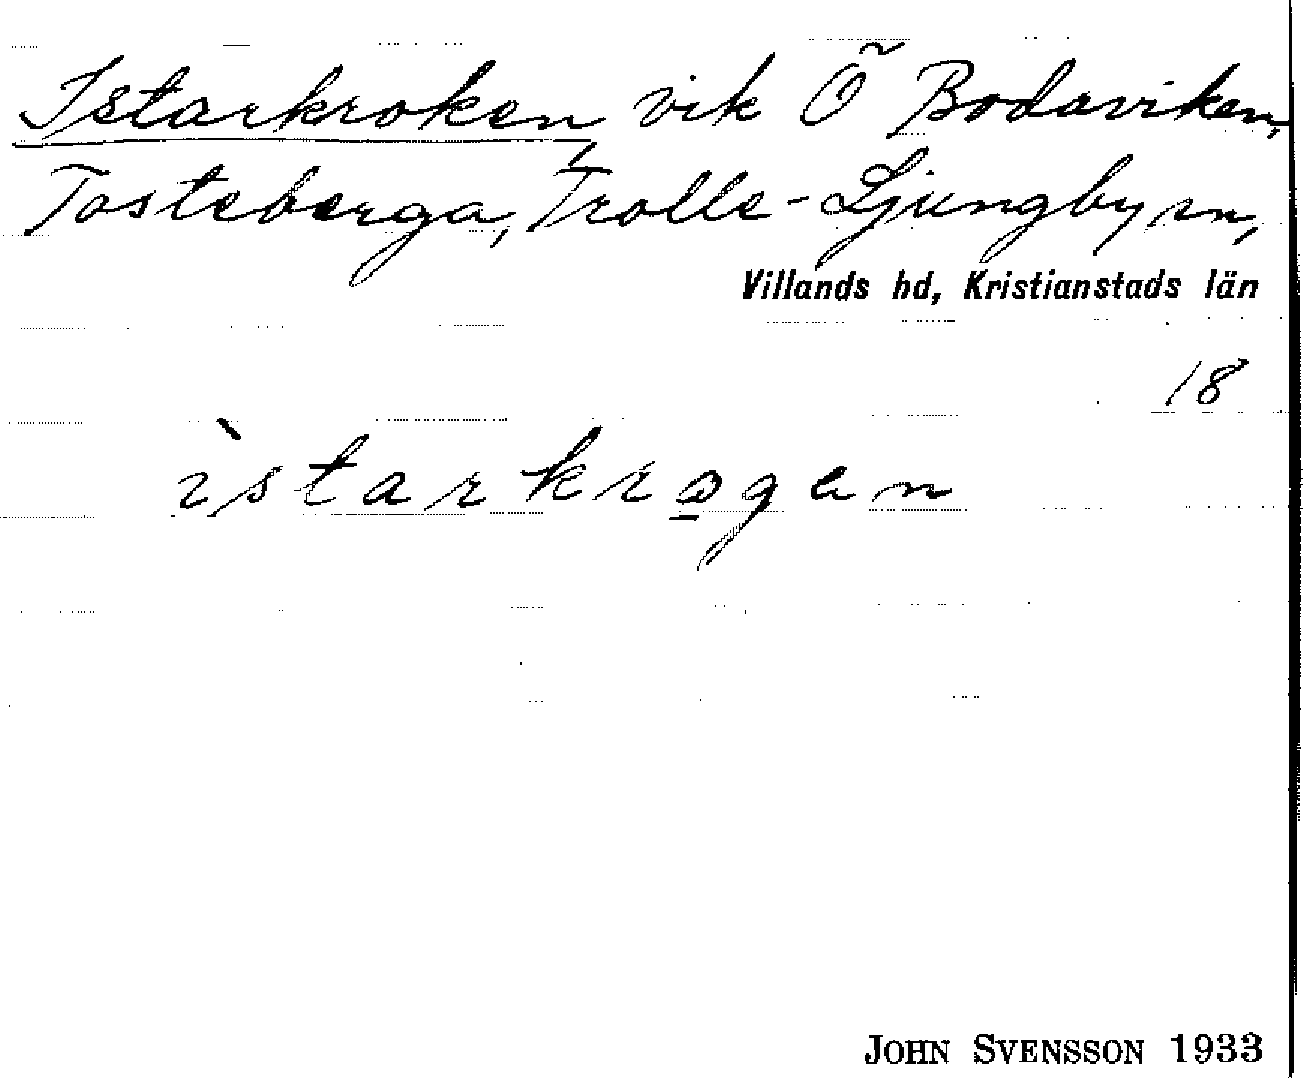 Istarkroken, vik Ö Bodaviken,
Tosteberga, Trolle-Ljungby sn,
Villands hd, Kristianstads län
18
ìstarkro̲gen
JOHN SVENSSON 1933